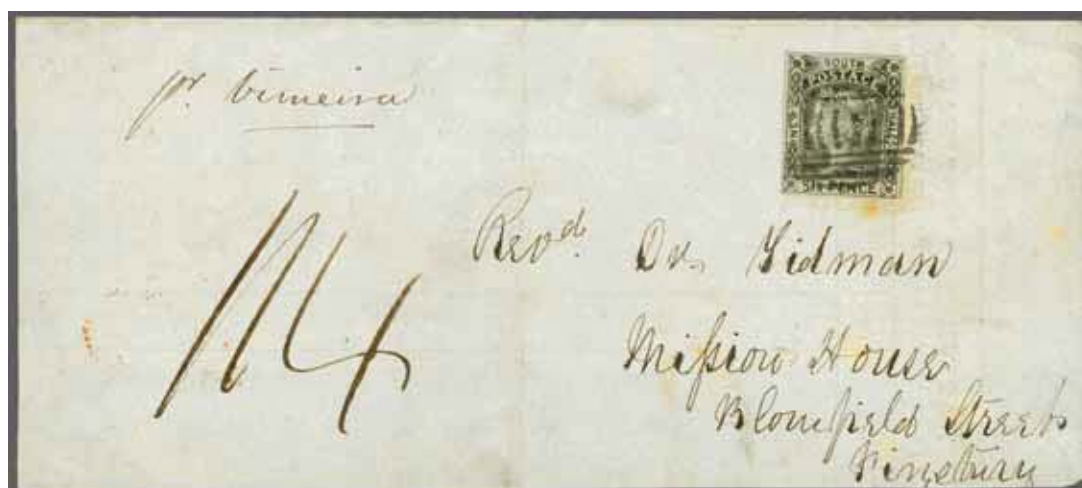 pr. Vimeira
SOUTH
POSTAGE
NEW
WALES
SIX PENCE
1/4
Revd. Dr. Tidman
Mission House
Blomfield Street
Finsbury